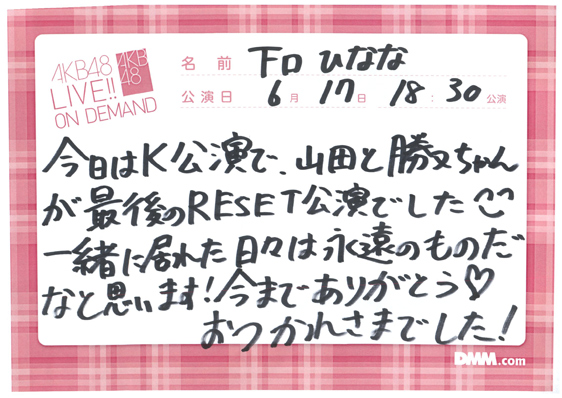 AKB48
LIVE!!
ON DEMAND
AKB
48
名前 下口ひなな
公演日 6月17日 18:30公演
今日はK公演で、山田と勝又ちゃん
が最後のRESET公演でした
一緒に居れた日々は永遠のものだ
なと思います!今までありがとう♡
おつかれさまでした!
DMM.com